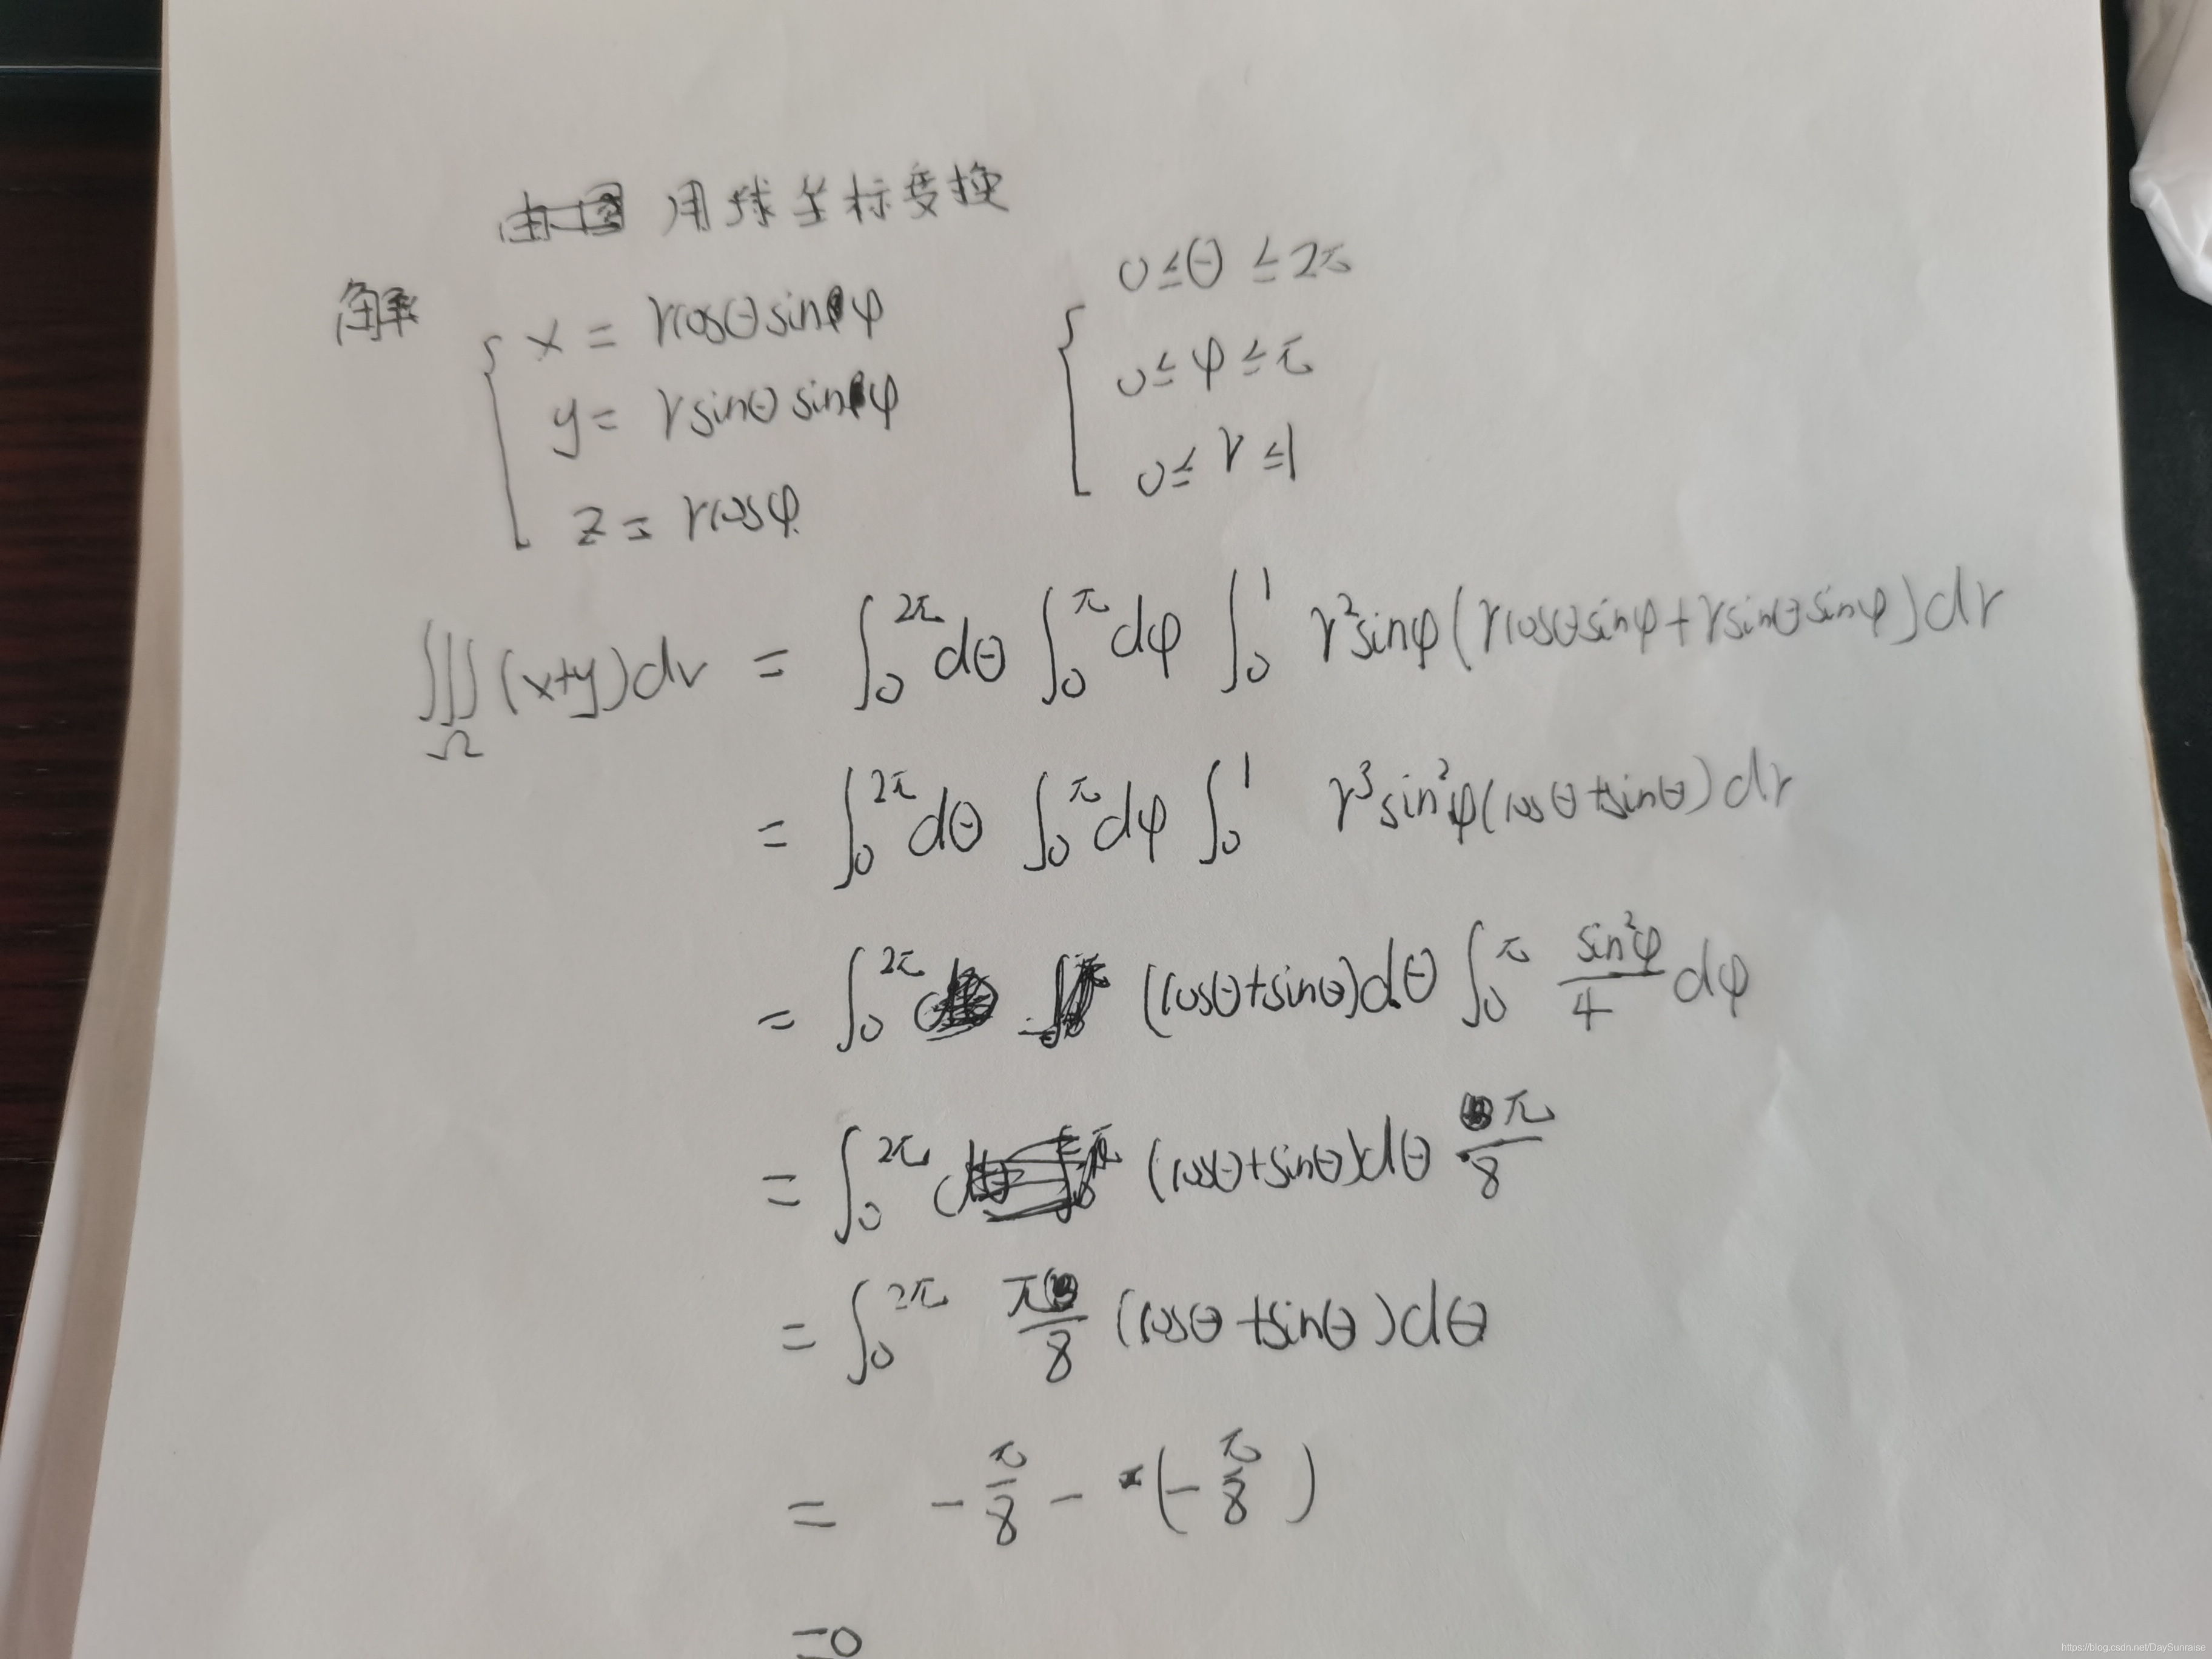 用球坐标变换
解 { x = rcosθsinφ { 0≤θ≤2π
y = rsinθsinφ 0≤φ≤π
z = rcosφ 0≤r≤1
∭Ω (x+y)dv = ∫₀^2π dθ ∫₀^π dφ ∫₀^1 r²sinφ(rcosθsinφ+rsinθsinφ)dr
= ∫₀^2π dθ ∫₀^π dφ ∫₀^1 r³sin²φ(cosθ+sinθ)dr
= ∫₀^2π (cosθ+sinθ)dθ ∫₀^π sin²φ/4 dφ
= ∫₀^2π (cosθ+sinθ)dθ π/8
= ∫₀^2π π/8 (cosθ+sinθ)dθ
= -π/8 - (-π/8)
=0
https://blog.csdn.net/DaySunraise